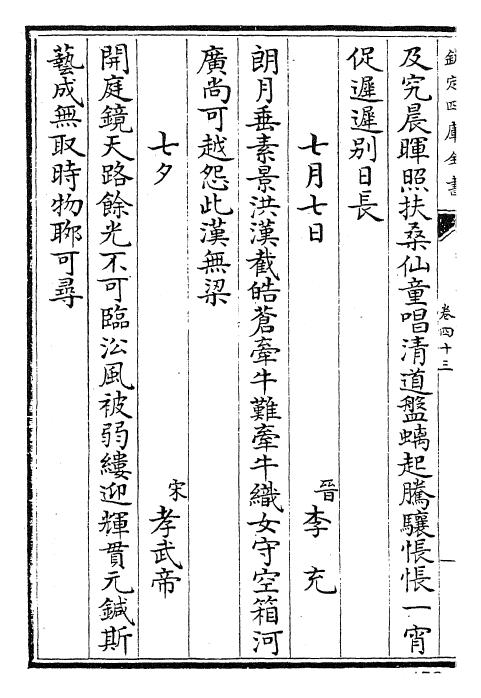 欽定四庫全書
卷四十三
及究晨暉照扶桑仙童唱清道盤螭起騰驤悵悵一宵
促遲遲别日長
七月七日 晉 李充
朗月垂素景洪漢截皓蒼牽牛難牽牛織女守空箱河
廣尚可越怨此漢無梁
七夕 宋 孝武帝
開庭鏡天路餘光不可臨㳂風被弱縷迎輝貫元鍼斯
藝成無取時物聊可尋